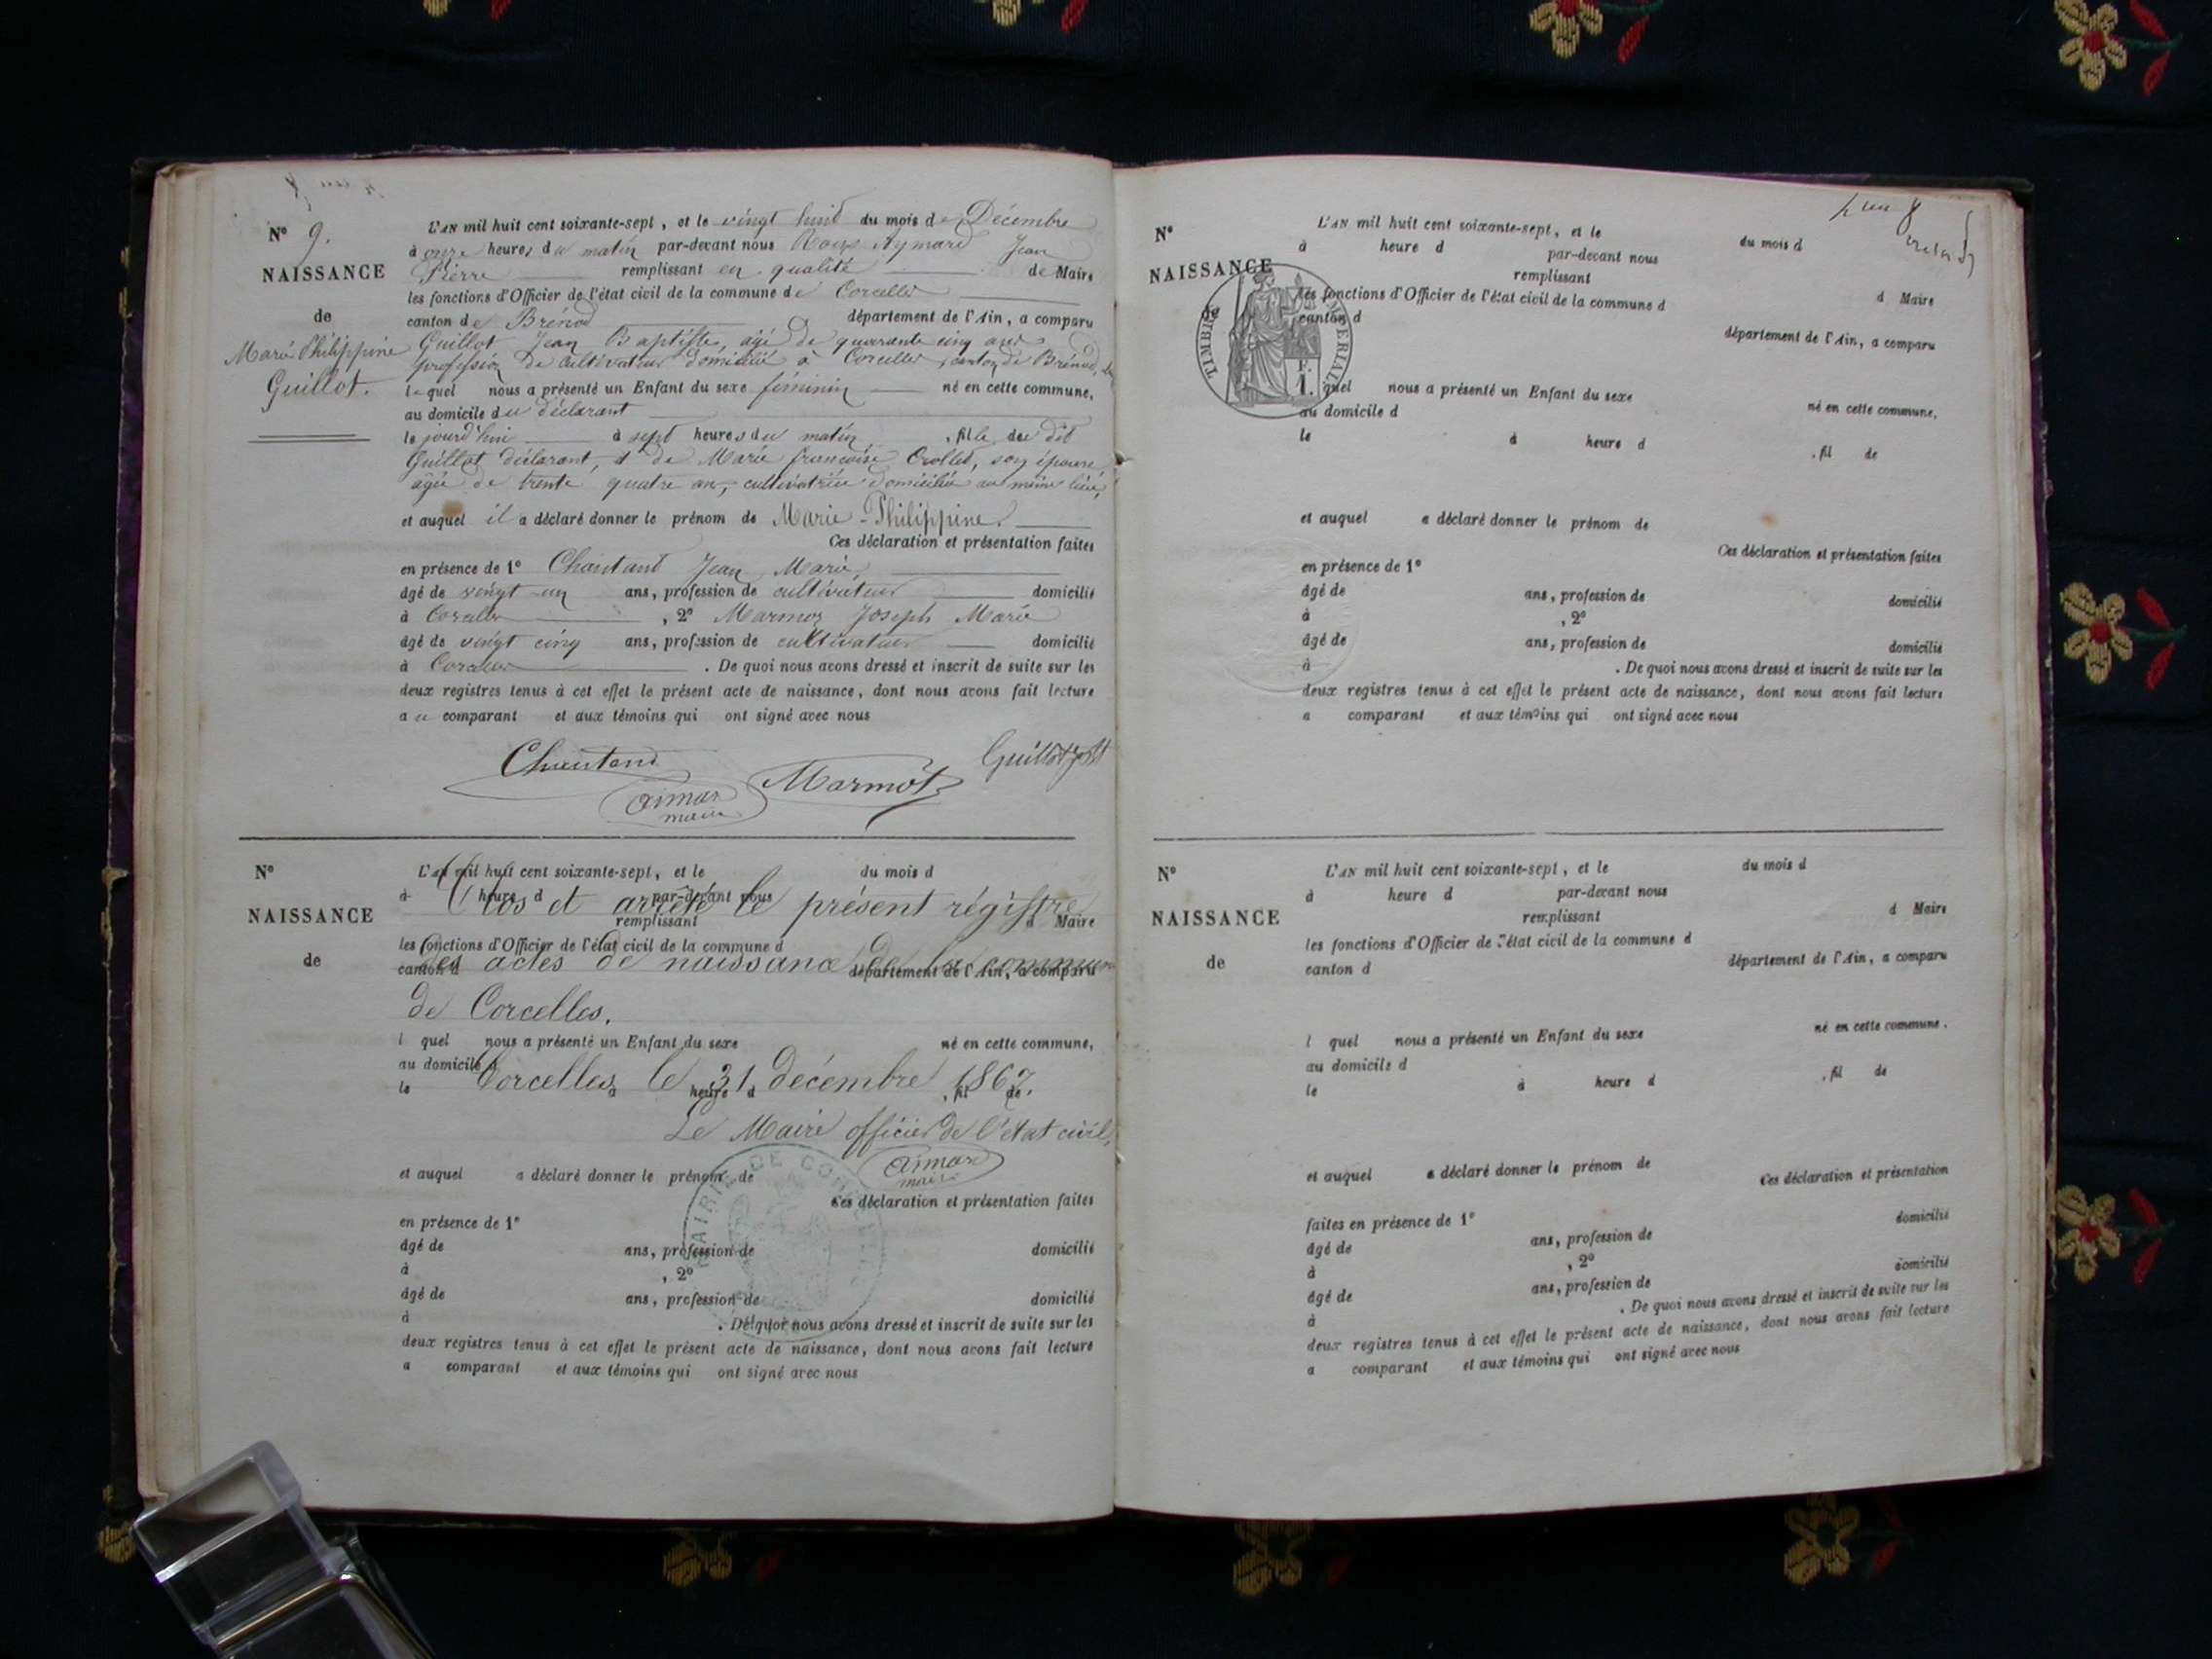 N° 9.
NAISSANCE
de
Marie Philippine
Guillot.
L'AN mil huit cent soixante-sept, et le vingt huit du mois de Décembre
à onze heures du matin par-devant nous Aymard Jean
Pierre remplissant en qualité de Maire
les fonctions d'Officier de l'état civil de la commune de Corcelles
canton de Brénod département de l'Ain, a comparu
Guillot Jean Baptiste, âgé de quarante cinq ans
profession de cultivateur domicilié à Corcelles, canton de Brénod,
lequel nous a présenté un Enfant du sexe féminin né en cette commune,
au domicile du déclarant
le jourd'hui à sept heures du matin, fille du dit
Guillot déclarant, et de Marie françoise Crollet, son épouse,
âgée de trente quatre ans, cultivatrice domiciliée au même lieu,
et auquel il a déclaré donner le prénom de Marie-Philippine.
Ces déclaration et présentation faites
en présence de 1° Chaintand Jean Marie,
âgé de vingt un ans, profession de cultivateur domicilié
à Corcelles, 2° Marmoz Joseph Marie
âgé de vingt cinq ans, profession de cultivateur domicilié
à Corcelles. De quoi nous avons dressé et inscrit de suite sur les
deux registres tenus à cet effet le présent acte de naissance, dont nous avons fait lecture
au comparant et aux témoins qui ont signé avec nous
Guillot
Marmot
aimar
maire
N°
NAISSANCE
de
L'AN mil huit cent soixante-sept, et le du mois d
à heure d par-devant nous
Clos et arrêté le présent régistre
remplissant d Maire
les fonctions d'Officier de l'état civil de la commune d
des actes de naissance de la commune
canton d département de l'Ain, a comparu
de Corcelles.
l quel nous a présenté un Enfant du sexe né en cette commune,
au domicile d
Corcelles le 31 décembre 1867.
le à heure d , fil de
Le Maire officier de l'état civil,
aimar
maire
et auquel a déclaré donner le prénom de
Ces déclaration et présentation faites
en présence de 1°
âgé de ans, profession de domicilié
à , 2°
âgé de ans, profession de domicilié
à . De quoi nous avons dressé et inscrit de suite sur les
deux registres tenus à cet effet le présent acte de naissance, dont nous avons fait lecture
a comparant et aux témoins qui ont signé avec nous
MAIRIE DE
N°
NAISSANCE
de
TIMBRE IMPERIAL
1. F.
L'AN mil huit cent soixante-sept, et le du mois d
à heure d par-devant nous
remplissant d Maire
les fonctions d'Officier de l'état civil de la commune d
canton d département de l'Ain, a comparu
quel nous a présenté un Enfant du sexe né en cette commune,
au domicile d
le à heure d , fil de
et auquel a déclaré donner le prénom de
Ces déclaration et présentation faites
en présence de 1°
âgé de ans, profession de domicilié
à , 2°
âgé de ans, profession de domicilié
à . De quoi nous avons dressé et inscrit de suite sur les
deux registres tenus à cet effet le présent acte de naissance, dont nous avons fait lecture
a comparant et aux témoins qui ont signé avec nous
N°
NAISSANCE
de
L'AN mil huit cent soixante-sept, et le du mois d
à heure d par-devant nous
remplissant d Maire
les fonctions d'Officier de l'état civil de la commune d
canton d département de l'Ain, a comparu
l quel nous a présenté un Enfant du sexe né en cette commune.
au domicile d
le à heure d , fil de
et auquel a déclaré donner le prénom de
Ces déclaration et présentation
faites en présence de 1° domicilié
âgé de ans, profession de
à , 2° domicilié
âgé de ans, profession de
à . De quoi nous avons dressé et inscrit de suite sur les
deux registres tenus à cet effet le présent acte de naissance, dont nous avons fait lecture
a comparant et aux témoins qui ont signé avec nous